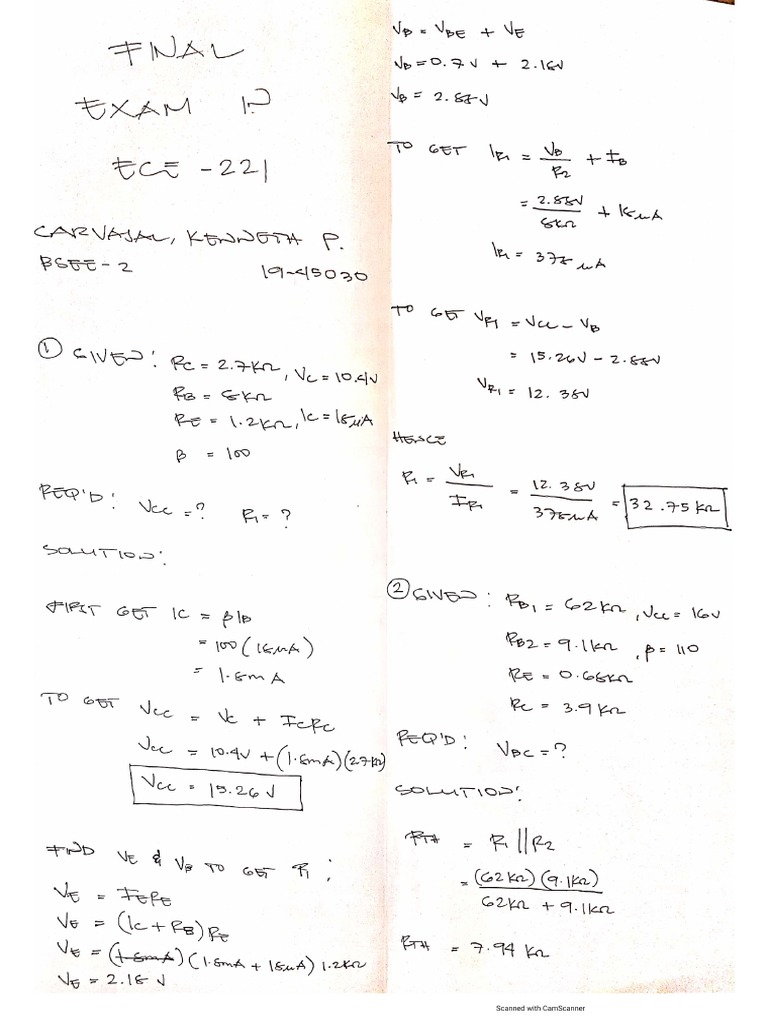 FINAL
EXAM IN
ECE - 221
CARVAJAL, KENNETH P.
BSEE-2 19-45030
① GIVEN: RC = 2.7KΩ, VC = 10.4V
RB = 8KΩ
RE = 1.2KΩ, IC = 18μA
β = 100
REQ'D: VCC = ? R1 = ?
SOLUTION:
FIRST GET IC = βIB
= 100(18μA)
= 1.8mA
TO GET VCC = VC + ICRC
VCC = 10.4V + (1.8mA)(2.7KΩ)
VCC = 15.26V
FIND VE & VB TO GET R1:
VE = IERE
VE = (IC + RB)RE
VE = (1.8mA)(1.8mA + 18μA) 1.2KΩ
VE = 2.18V
VB = VBE + VE
VB = 0.7V + 2.18V
VB = 2.88V
TO GET IR1 = VB/R2 + IB
= 2.88V/8KΩ + 18μA
IR1 = 378μA
TO GET VR1 = VCC - VB
= 15.26V - 2.88V
VR1 = 12.38V
HENCE
R1 = VR1/IR1 = 12.38V/378μA = 32.75KΩ
② GIVEN: RB1 = 62KΩ, VCC = 16V
RB2 = 9.1KΩ, β = 110
RE = 0.68KΩ
RC = 3.9KΩ
REQ'D: VBC = ?
SOLUTION:
RTH = R1 || R2
= (62KΩ)(9.1KΩ)/62KΩ + 9.1KΩ
RTH = 7.94KΩ
Scanned with CamScanner